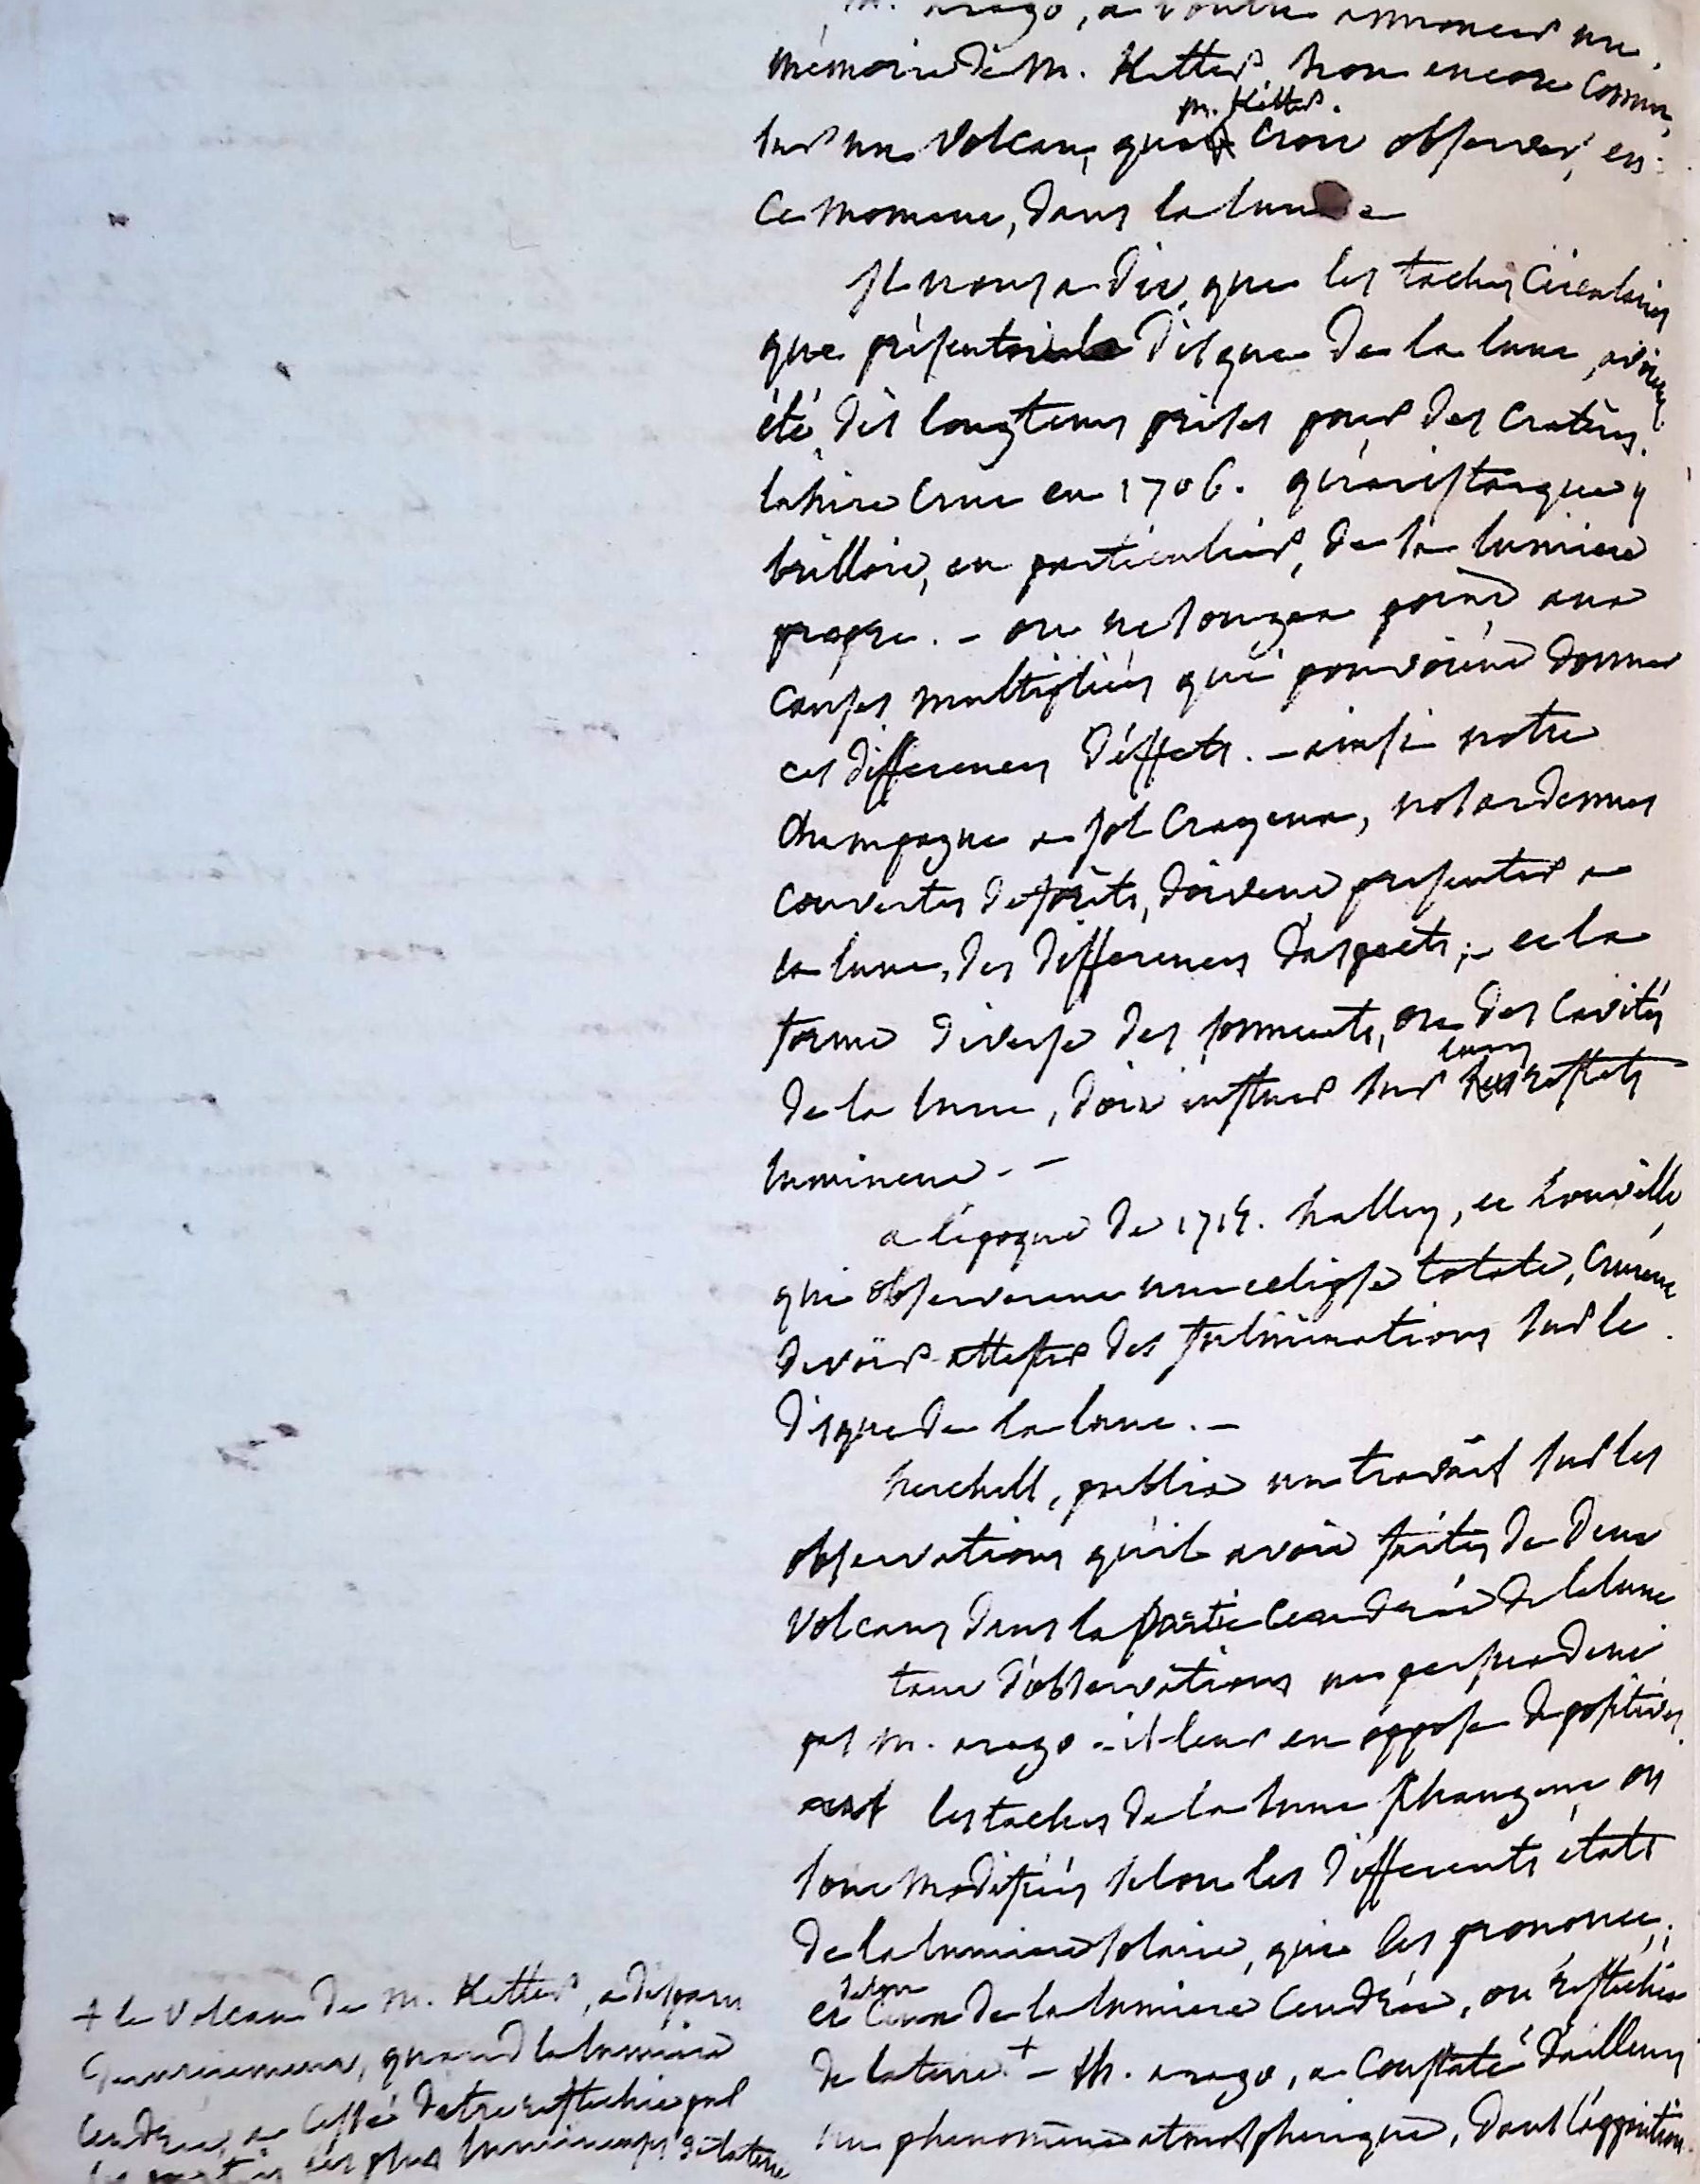 M. arago, a voulu annoncer un
mémoire de M. Katter, non encore connu,
sur un volcan, que M. Katter. croit observer, en
ce moment, dans la lune
Il nous a dit, que les taches circulaires
que présentoit le disque de la lune, avoient
été, dès longtems prises pour des cratères.
lahire crut en 1706. qu'aristarque y
brilloit, en particulier, de sa lumiere
propre. - on ne songea point, aux
causes multipliées qui pouvoient donner
ces differences d'effets. - ainsi notre
champagne a sol crayeux, nos ardennes
couvertes de forêts, doivent presenter a
la lune, des differences d'aspects; - et la
forme diverse des sommets, ou des cavités
de la lune, doit influer sur leurs reflets
lumineux. -
a l'époque de 1715. halley, et Louville
qui observerent une eclipse totale, crurent
devoir attester des fulminations sur le
disque de la lune. -
herchell, publia un travail sur les
observations qu'il avoit faites de deux
volcans dans la partie cendrée de la lune
tant d'observations ne persuadent
pas M. arago - il leur en oppose de positives.
les taches de la lune changent ou
sont modifiées selon les différents états
de la lumiere solaire, qui les prononce;
et selon ceux de la lumiere cendrée, ou réflechie
de la terre. + - M. arago, a constaté d'ailleurs
un phenomène atmospherique, dont l'apparition
+ le volcan de M. Katter, a disparu
, quand la lumiere
cendrée, a cessé d'etre reflechie par
les parties les plus lumineuses de la terre